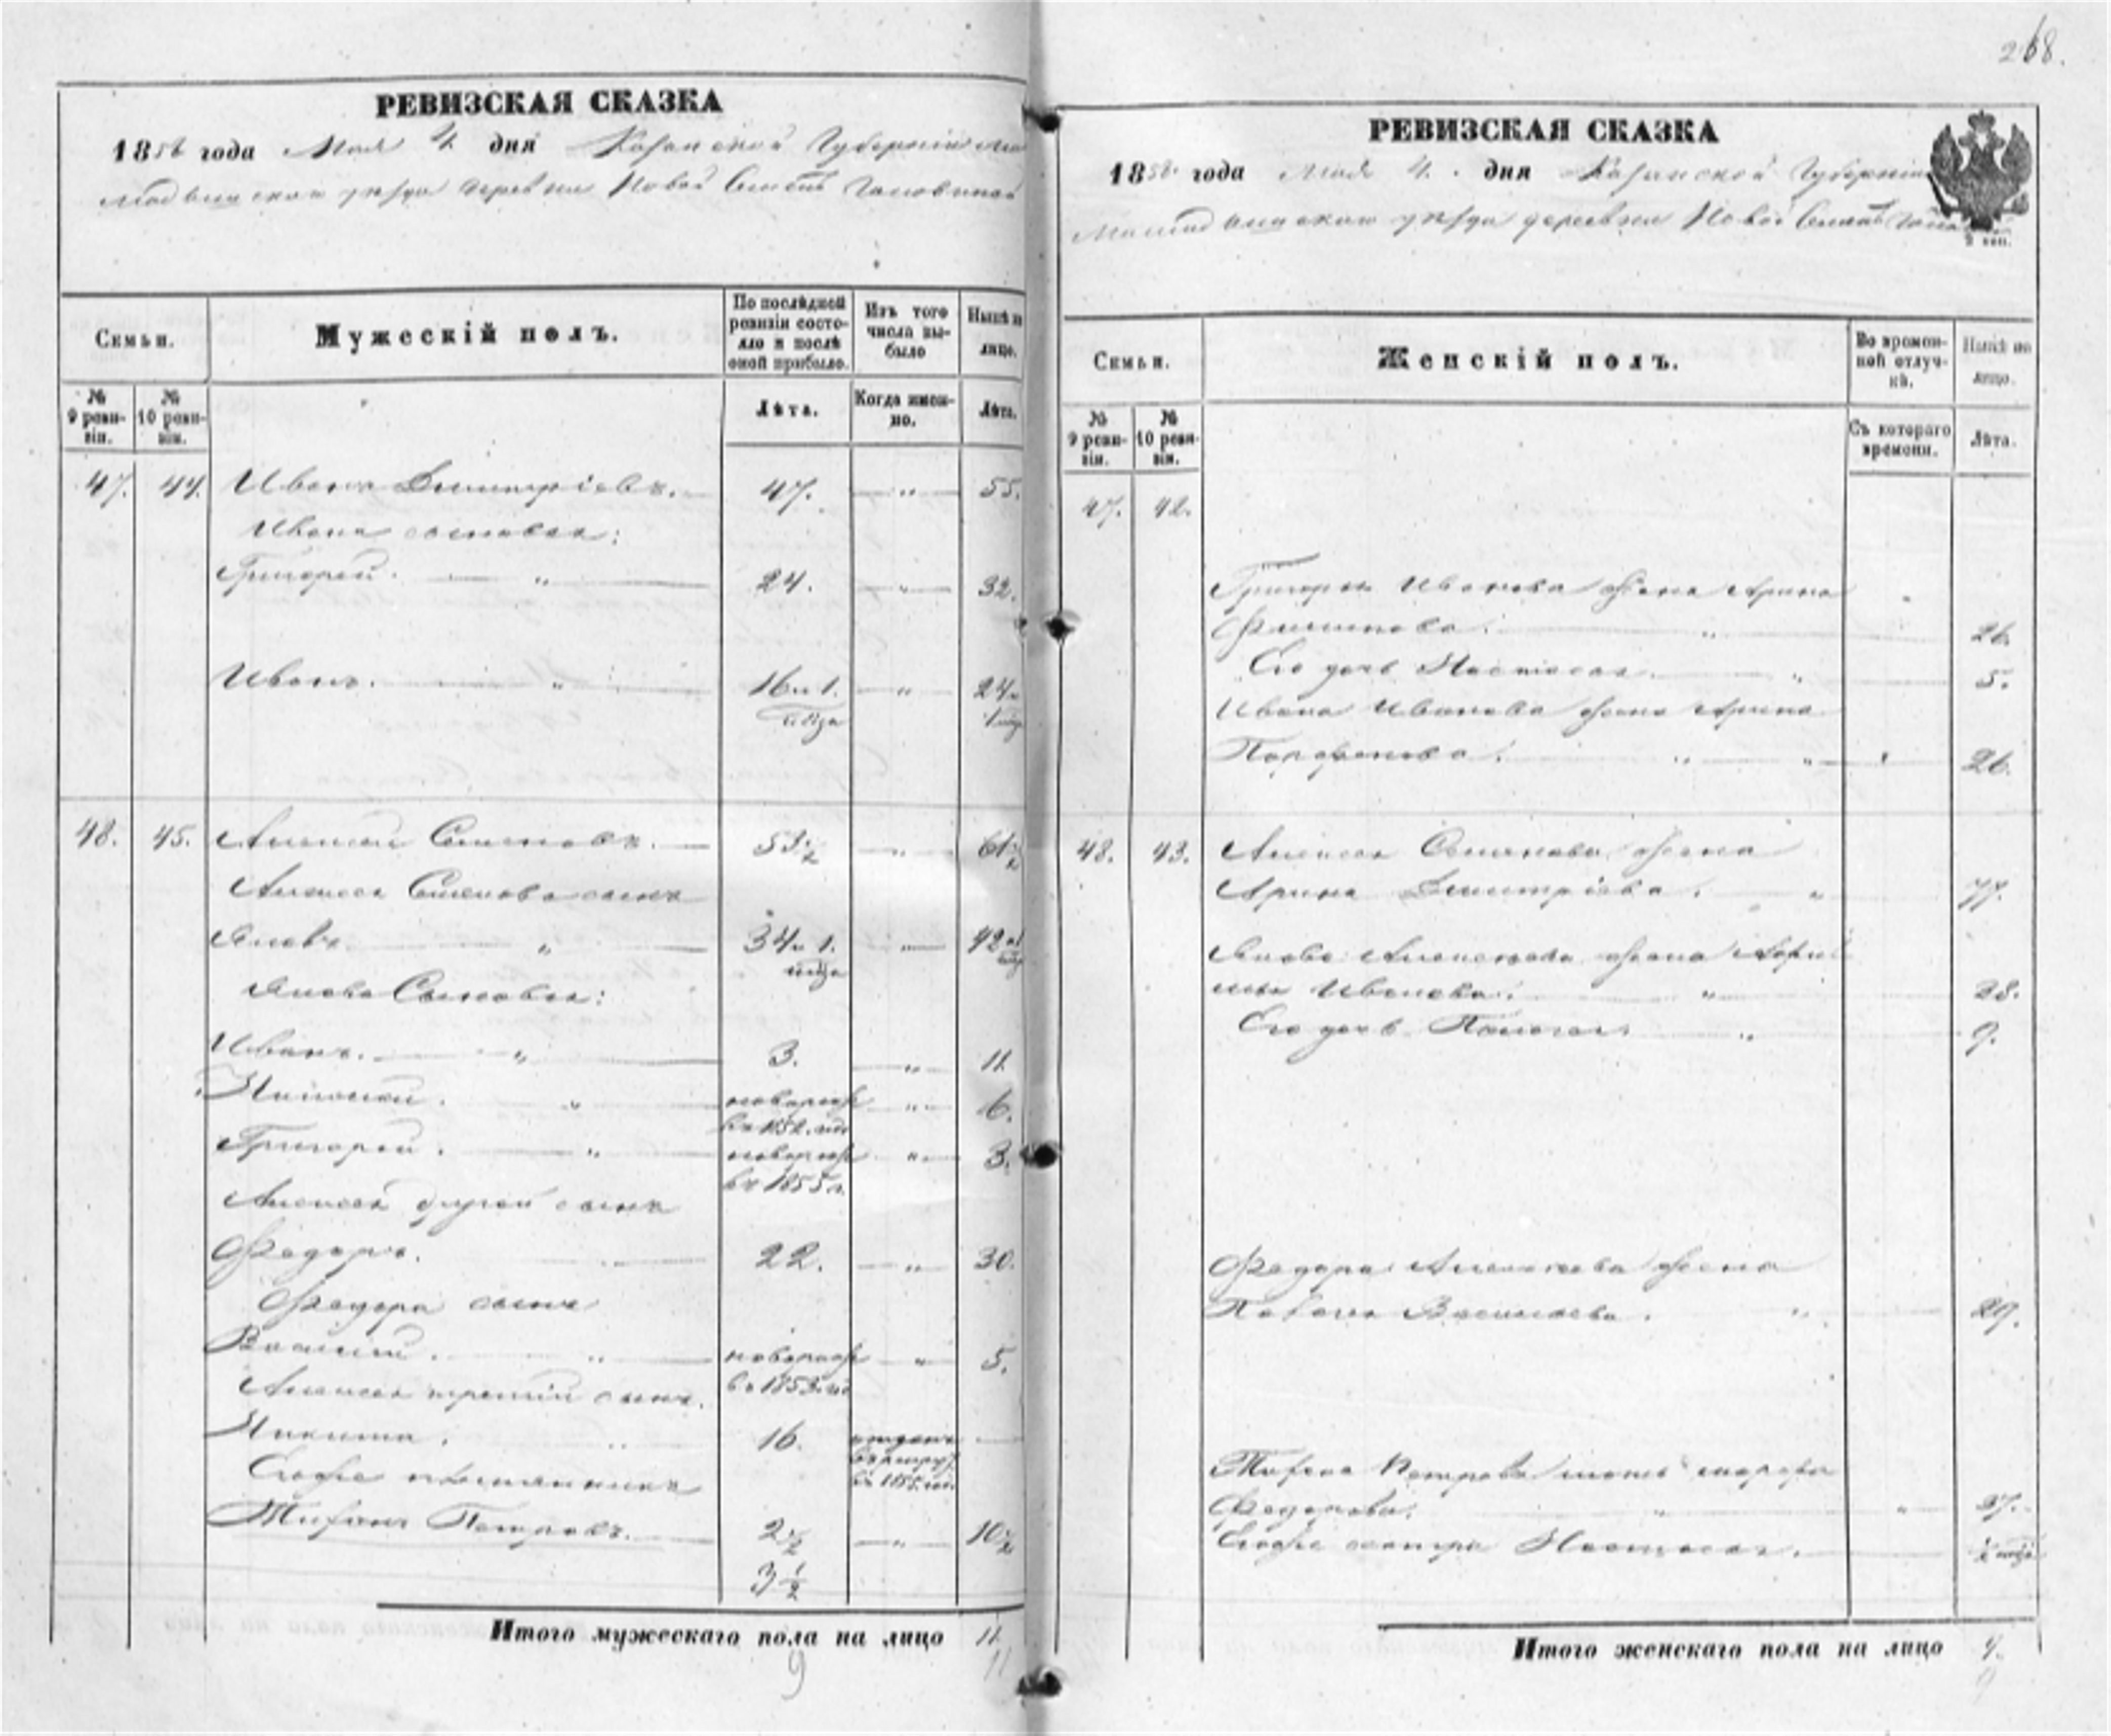 РЕВИЗСКАЯ СКАЗКА
1858 года Мая 4 дня Казанской Губернии
уезда деревни Новой
Семьи.
Мужескій полъ.
По послѣдней ревизіи состояло и послѣ оной прибыло.
Изъ того числа выбыло
Нынѣ на лицо.
№ 9 ревизіи.
№ 10 ревизіи.
Лѣта.
Когда именно.
Лѣта.
47. 44. Иванъ Димитріевъ. 47. — " — 55.
Ивана сыновья:
Григорей. " 24. — " — 32.
Иванъ. " 16 и 1. — " — 24 и
48. 45. Алексей Семеновъ. 53 1/2 — " — 61 1/2
Алексея Семенова сынъ
Яковъ " 34 и 1. — " — 42
Якова Сыновья:
Иванъ. " 3. " 11
Николай. " новорож " 6.
въ 1852
Григорей. " новорож " 3.
въ 1855 г.
Алексея другой сынъ
Федоръ. 22. — " — 30.
Федора сынъ
Василий. " новорож " 5.
въ 1853
Алексея третий сынъ.
Никита. " 16. отданъ —
въ рекруты
въ 1855
Егоже племянникъ
Петровъ. 2 1/2 — " — 10 1/2
3 1/2
Итого мужескаго пола на лицо 11.
9 11
268.
РЕВИЗСКАЯ СКАЗКА
1858 года Мая 4. дня Казанской Губерніи
уезда деревни Новой
Семьи.
Женскій полъ.
Во временной отлучкѣ.
Нынѣ на лицо.
№ 9 ревизіи.
№ 10 ревизіи.
Съ котораго времени.
Лѣта.
47. 42.
Григорья Иванова жена Арина
Филипова. " 26.
Его дочь Настасья. " 5.
Ивана Иванова жена Арина
Парфенова. " " 26.
48. 43. Алексея Семенова жена
Арина Димитріева. "
Якова Алексеева жена
Иванова. " 38.
Его дочь Пелагея " 9.
Федора Алексеева жена
Васильева. " 29.
Петрова мать
Федорова. " " 37.
Егоже сестра Настасья.
Итого женскаго пола на лицо 9.
9